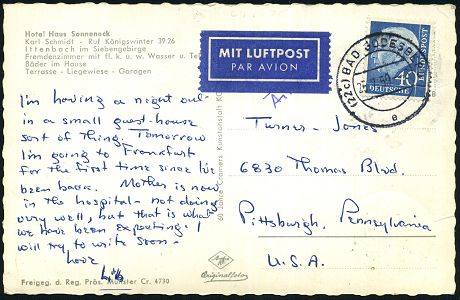 Hotel Haus Sonneneck
Karl Schmidt - Ruf Königswinter 3926
Ittenbach im Siebengebirge
Fremdenzimmer mit fl. k. u. w. Wasser u. Te
Bäder im Hause
Terrasse - Liegewiese - Garagen
MIT LUFTPOST
PAR AVION
(22c) BAD GODESB
e
40
DEUTSCHE
BUNDESPOST
I'm having a night out-
in a small guest-house
sort of thing. Tomorrow
I'm going to Frankfurt
for the first time since I've
been back. Mother is now
in the hospital - not doing
very well, but that is what
we have been expecting. I
will try to write soon -
Love
Turner - Jones
6830 Thomas Blvd.
Pittsburgh, Pennsylvania
U.S.A.
Cramers Kunstanstalt KG
Agfa
Originalfoto
Freigeg. d. Reg. Präs. Münster Cr. 4730